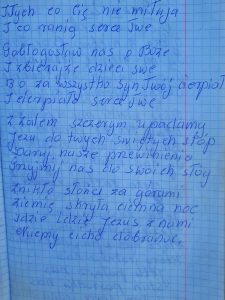 Tych co Cię nie miłują
I co ranią serce Twe
Pobłogosław nas o Boże
I zbieraj że dzieci swe
Bo za wszystko Syn Twój cierpiał
I cierpiało serce Twe
Z żalem szczerym upadamy
Jezu do twych świętych stóp
Daruj nasze przewinienia
Przyjmij nas do swoich sług
Znikło słońce za górami
ziemię skryła ciemna noc
idzie Jezus z nami
cicho dobranoc,